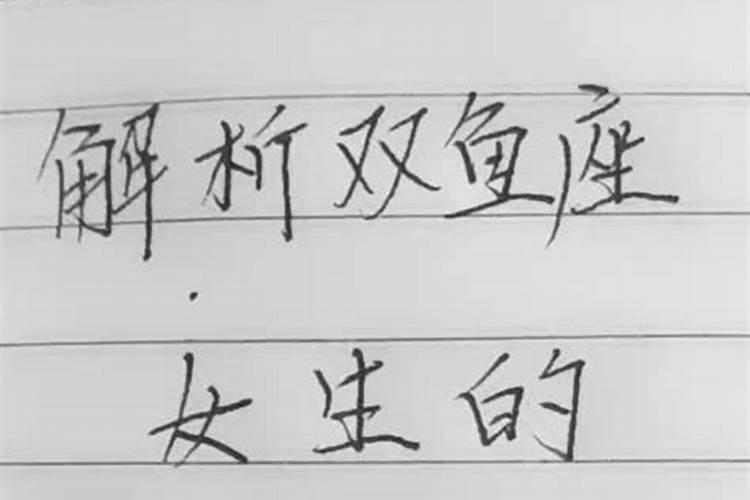 解析双鱼座
女生的